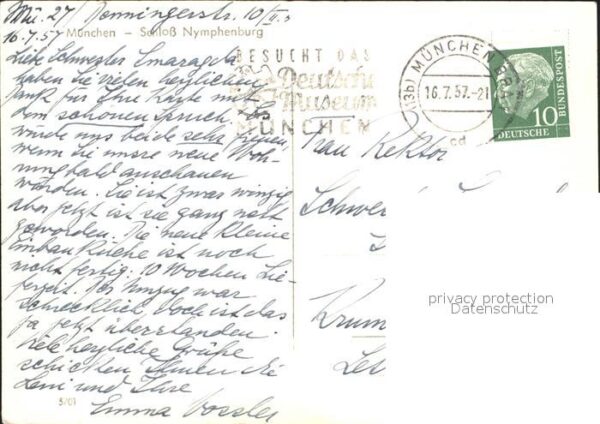 Mü. 27, Denningerstr. 10/II. r
16.7.57
München – Schloß Nymphenburg
Liebe Schwester Smaragda
haben Sie vielen herzlichen
Dank für Ihre Karte mit
dem schönen Spruch. Es
würde uns beide sehr freuen,
wenn Sie unsre neue Woh-
nung bald anschauen
würden. Sie ist zwar winzig
aber jetzt ist sie ganz nett
geworden. Die neue kleine
Einbauküche ist noch
nicht fertig: 10 Wochen Lie-
ferzeit. Der Umzug war
schrecklich, doch ist das
ja jetzt überstanden.
Viele herzliche Grüße
schicken Ihnen die
Leni und Ihre
Emma Vossler
5/01
BESUCHT DAS
Deutsche
Museum
MÜNCHEN
(13b) MÜNCHEN BBA
16.7.57.-21
cd
10
DEUTSCHE
BUNDESPOST
Frau Rektor
Schwe
Krum
privacy protection
Datenschutz